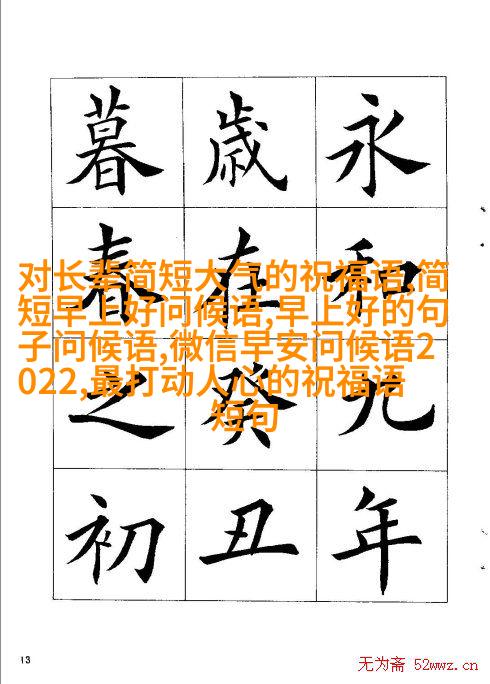 永和九年
歲在癸丑
暮春之初
对长辈简短大气的祝福语,简
短早上好问候语,早上好的句
子问候语,微信早安问候语2
022,最打动人心的祝福语
短句
13
无为斋 52wwz.cn